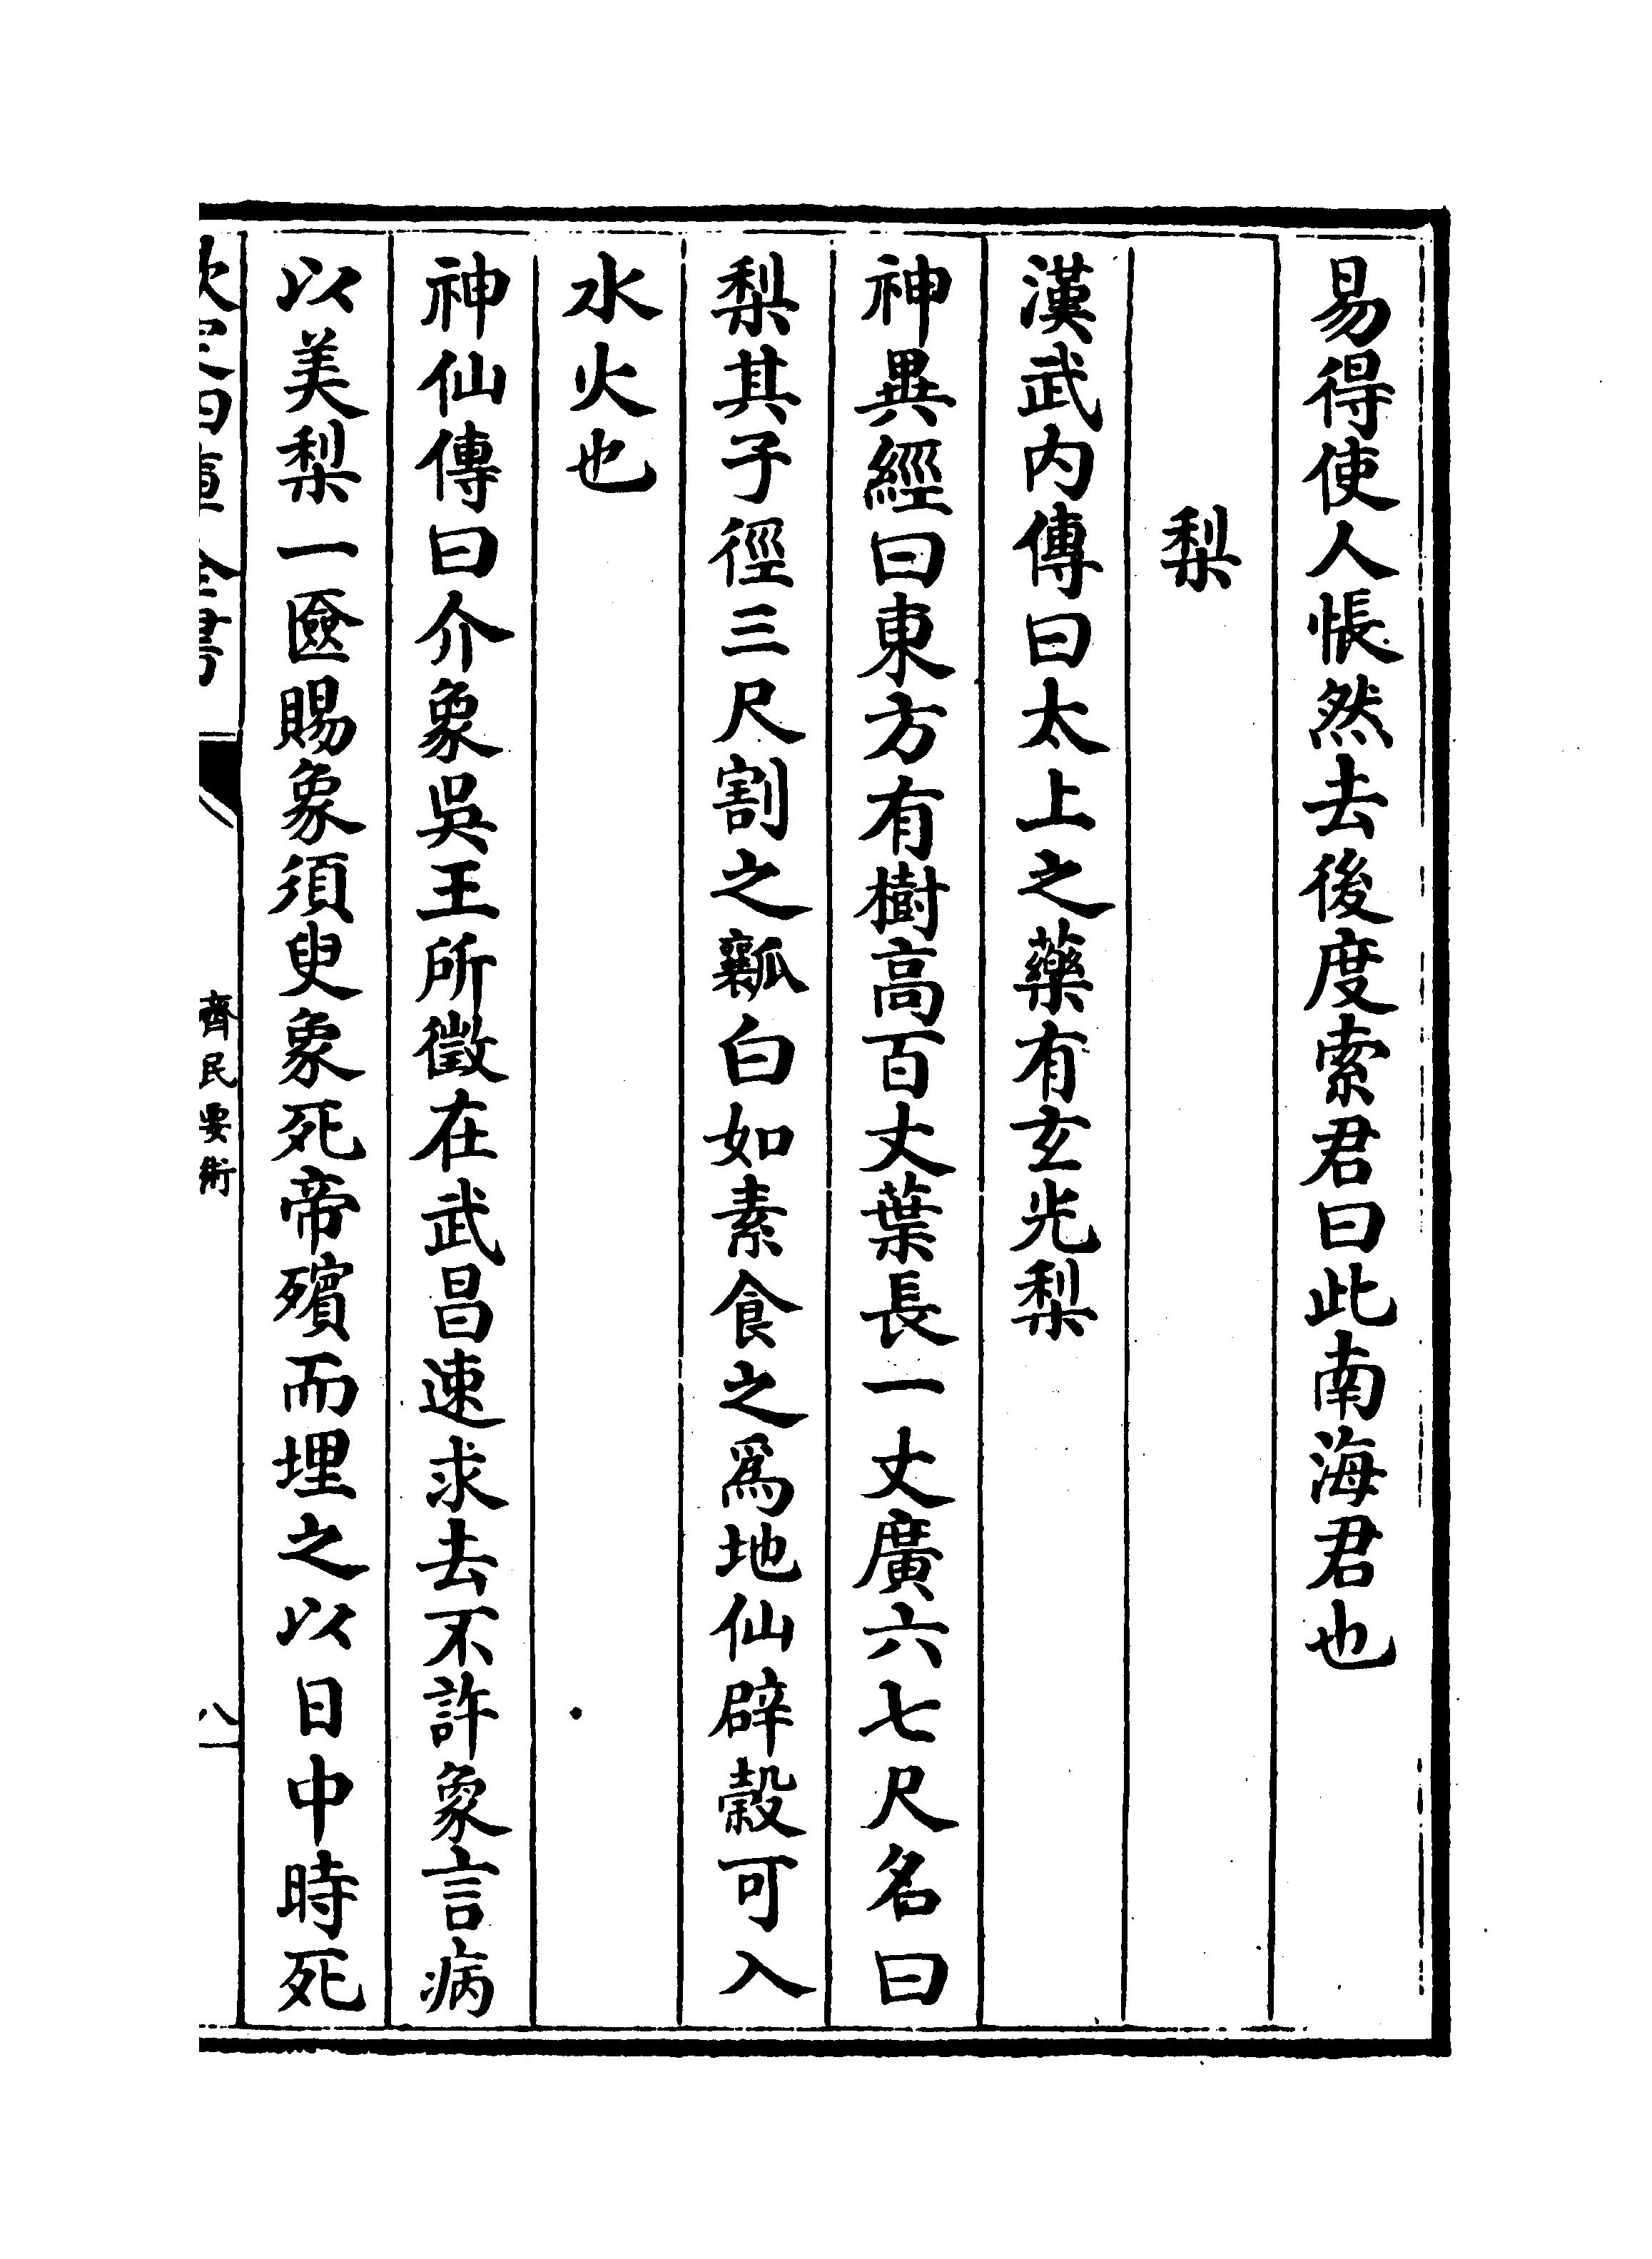 易得使人悵然去後度索君曰此南海君也
梨
漢武内傳曰太上之藥有玄光梨
神異經曰東方有樹高百丈葉長一丈廣六七尺名曰
梨其子徑三尺割之瓤白如素食之爲地仙辟穀可入
水火也
神仙傳曰介象吳王所徵在武昌速求去不許象言病
以美梨一匳賜象須臾象死帝殯而埋之以日中時死
欽定四庫全書
齊民要術
八